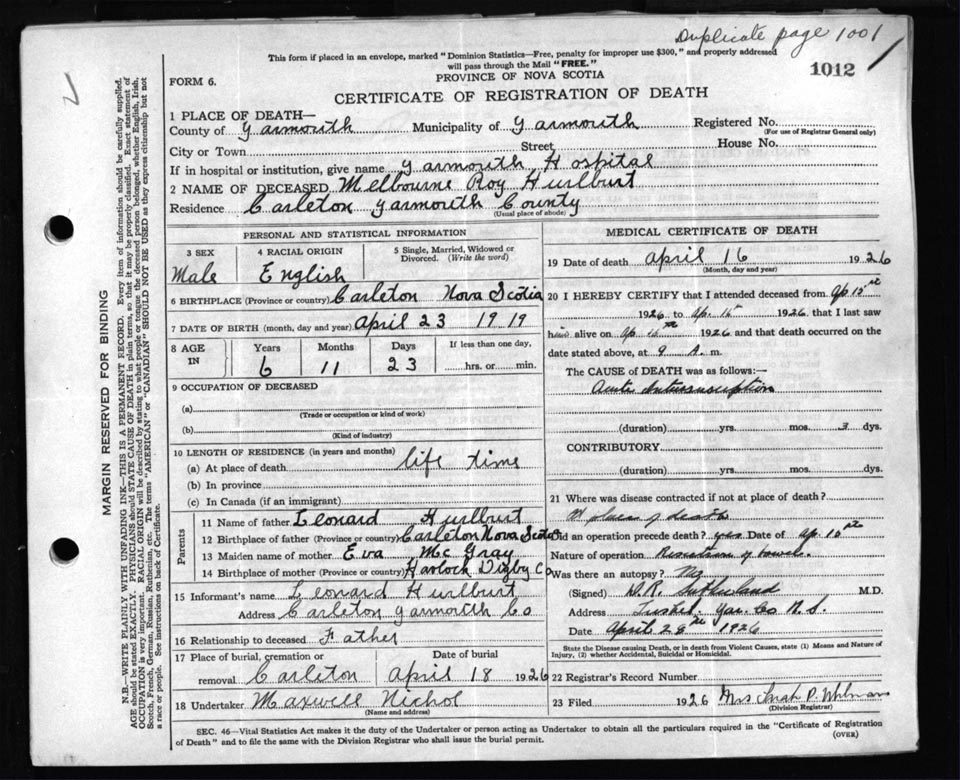 Duplicate page 1001
This form if placed in an envelope, marked "Dominion Statistics—Free, penalty for improper use $300," and properly addressed
will pass through the Mail "FREE."
1012
FORM 6.
PROVINCE OF NOVA SCOTIA
CERTIFICATE OF REGISTRATION OF DEATH
1 PLACE OF DEATH—
County of Yarmouth Municipality of Yarmouth Registered No.
(For use of Registrar General only)
City or Town Street House No.
If in hospital or institution, give name Yarmouth Hospital
2 NAME OF DECEASED Melbourne Roy Hurlburt
Residence Carleton Yarmouth County
(Usual place of abode)
PERSONAL AND STATISTICAL INFORMATION
3 SEX 4 RACIAL ORIGIN 5 Single, Married, Widowed or
Divorced. (Write the word)
Male English
6 BIRTHPLACE (Province or country) Carleton Nova Scotia
7 DATE OF BIRTH (month, day and year) April 23 1919
8 AGE IN Years Months Days If less than one day,
6 11 23 hrs. or min.
9 OCCUPATION OF DECEASED
(a)
(Trade or occupation or kind of work)
(b)
(Kind of industry)
10 LENGTH OF RESIDENCE (in years and months)
(a) At place of death life time
(b) In province
(c) In Canada (if an immigrant)
Parents
11 Name of father Leonard Hurlburt
12 Birthplace of father (Province or country) Carleton Nova Scotia
13 Maiden name of mother Eva McGray
14 Birthplace of mother (Province or country) Havlock Digby Co
15 Informant's name Leonard Hurlburt
Address Carleton Yarmouth Co
16 Relationship to deceased Father
17 Place of burial, cremation or Date of burial
removal Carleton April 18 1926
18 Undertaker Maxwell Nichol
(Name and address)
MEDICAL CERTIFICATE OF DEATH
19 Date of death April 16 1926
(Month, day and year)
20 I HEREBY CERTIFY that I attended deceased from Ap 15
1926 to Ap. 1926 that I last saw
him alive on Ap 1926 and that death occurred on
date stated above, at 9 A. m.
The CAUSE of DEATH was as follows:—
Acute Intussusception
(duration) yrs. mos. 3 dys.
CONTRIBUTORY
(duration) yrs. mos. dys.
21 Where was disease contracted if not at place of death?
At place of death
Did an operation precede death? yes Date of Ap
Nature of operation Resection of bowel.
Was there an autopsy? No
(Signed) Sutherland M.D.
Address Tusket Yar. Co N.S.
Date April 28 1926
State the Disease causing Death, or in death from Violent Causes, state (1) Means and Nature of
Injury, (2) whether Accidental, Suicidal or Homicidal.
22 Registrar's Record Number
23 Filed 1926 Mrs Sarah
(Division Registrar)
SEC. 46—Vital Statistics Act makes it the duty of the Undertaker or person acting as Undertaker to obtain all the particulars required in the "Certificate of Registration
of Death" and to file the same with the Division Registrar who shall issue the burial permit.
(OVER)
MARGIN RESERVED FOR BINDING
N.B.—WRITE PLAINLY WITH UNFADING INK—THIS IS A PERMANENT RECORD. Every item of information should be carefully supplied.
AGE should be stated EXACTLY. PHYSICIANS should STATE CAUSE OF DEATH in plain terms, so that it may be properly classified. Exact statement of
OCCUPATION is very important. RACIAL ORIGIN will be described by stating to what people or tongue the deceased person belonged, whether English, Irish,
Scotch, French, German, Russian, Ruthenian, etc. The terms "AMERICAN" or "CANADIAN" SHOULD NOT BE USED as they express citizenship but not
a race or people. See instructions on back of Certificate.